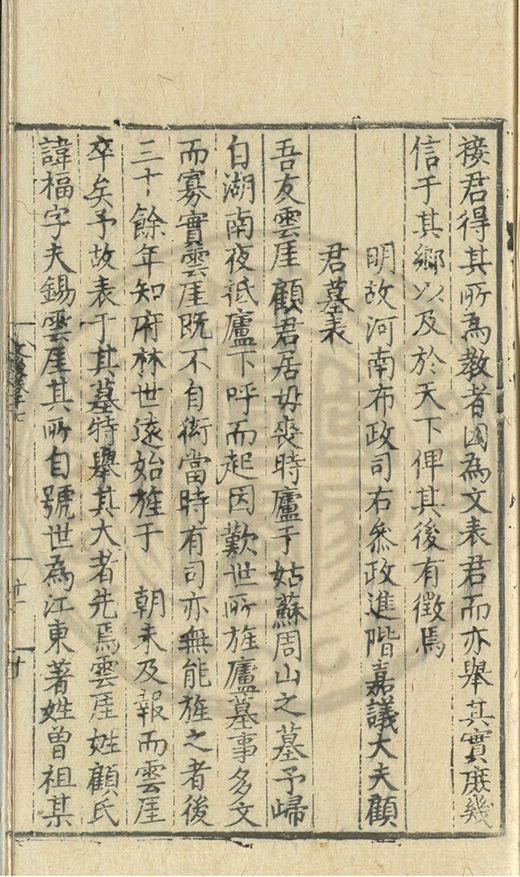 接君得其所為教者因為文表君而亦舉其實庶幾
信于其鄉以及於天下俾其後有徵焉
明故河南布政司右叅政進階嘉議大夫顧
君墓表
吾友雲厓顧君居母喪時廬于姑蘇周山之墓予歸
自湖南夜詆廬下呼而起因歎世所旌廬墓事多文
而寡實雲厓既不自衒當時有司亦無能旌之者後
三十餘年知府林世遠始旌于 朝未及報而雲厓
卒矣予故表于其墓特舉其大者先焉雲厓姓顧氏
諱福字天錫雲厓其所自號世為江東著姓曾祖某